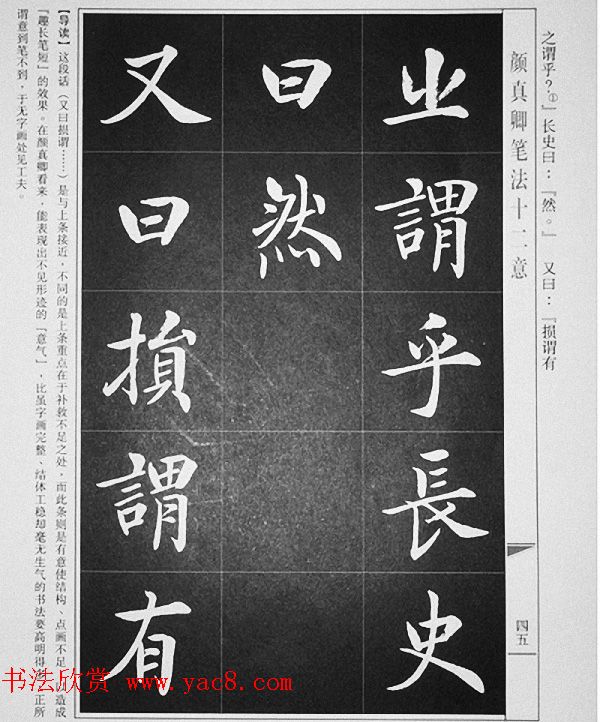 之谓乎？①』长史曰：『然。』 又曰：『损谓有
颜真卿笔法十二意
四五
之謂乎長史
曰然
又曰損謂有
【导读】这段话（又曰损谓……）是与上条接近，不同的是上条重点在于补救不足之处，而此条则是有意使结构、点画不足，以造成
『趣长笔短』的效果。在颜真卿看来，能表现出不见形迹的『意气』，比虽字画完整、结体工稳却毫无生气的书法要高明得 正所
谓意到笔不到，于无字画处见工夫。
书法欣赏 www.yac8.com